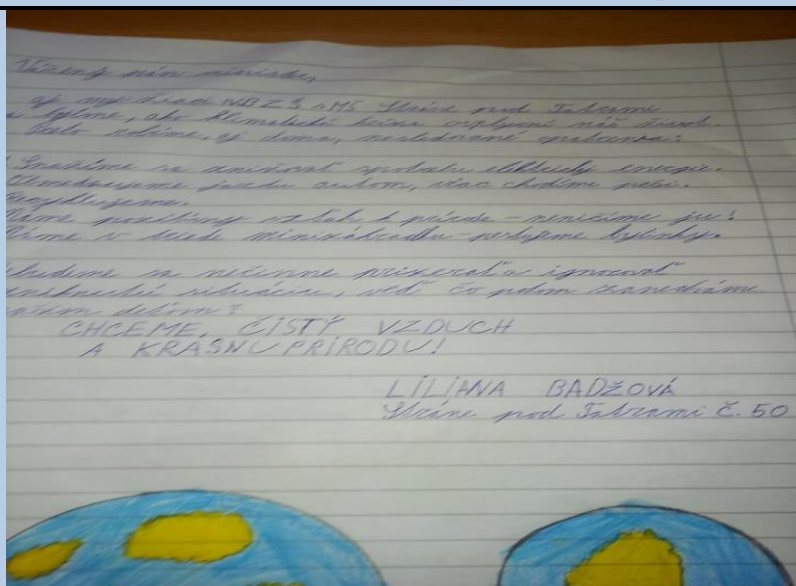 Vážený pán minister,
aj my žiaci ZŠ s MŠ Stráne pod Tatrami
ako klimatická kríza ovplyvní náš život.
robíme, aj doma, nasledovné opatrenia:
Snažíme sa znižovať spotrebu elektrickej energie.
Obmedzujeme jazdu autom, viac chodíme pešo.
Recyklujeme.
Máme pozitívny vzťah k prírode - neničíme ju!
Máme v triede minizáhradku - pestujeme bylinky.
sa nečinne prizerať a ignorovať
situáciu, veď čo potom zanecháme
deťom?
CHCEME, ČISTÝ VZDUCH
A KRÁSNU PRÍRODU!
LILIANA BADŽOVÁ
Stráne pod Tatrami č. 50